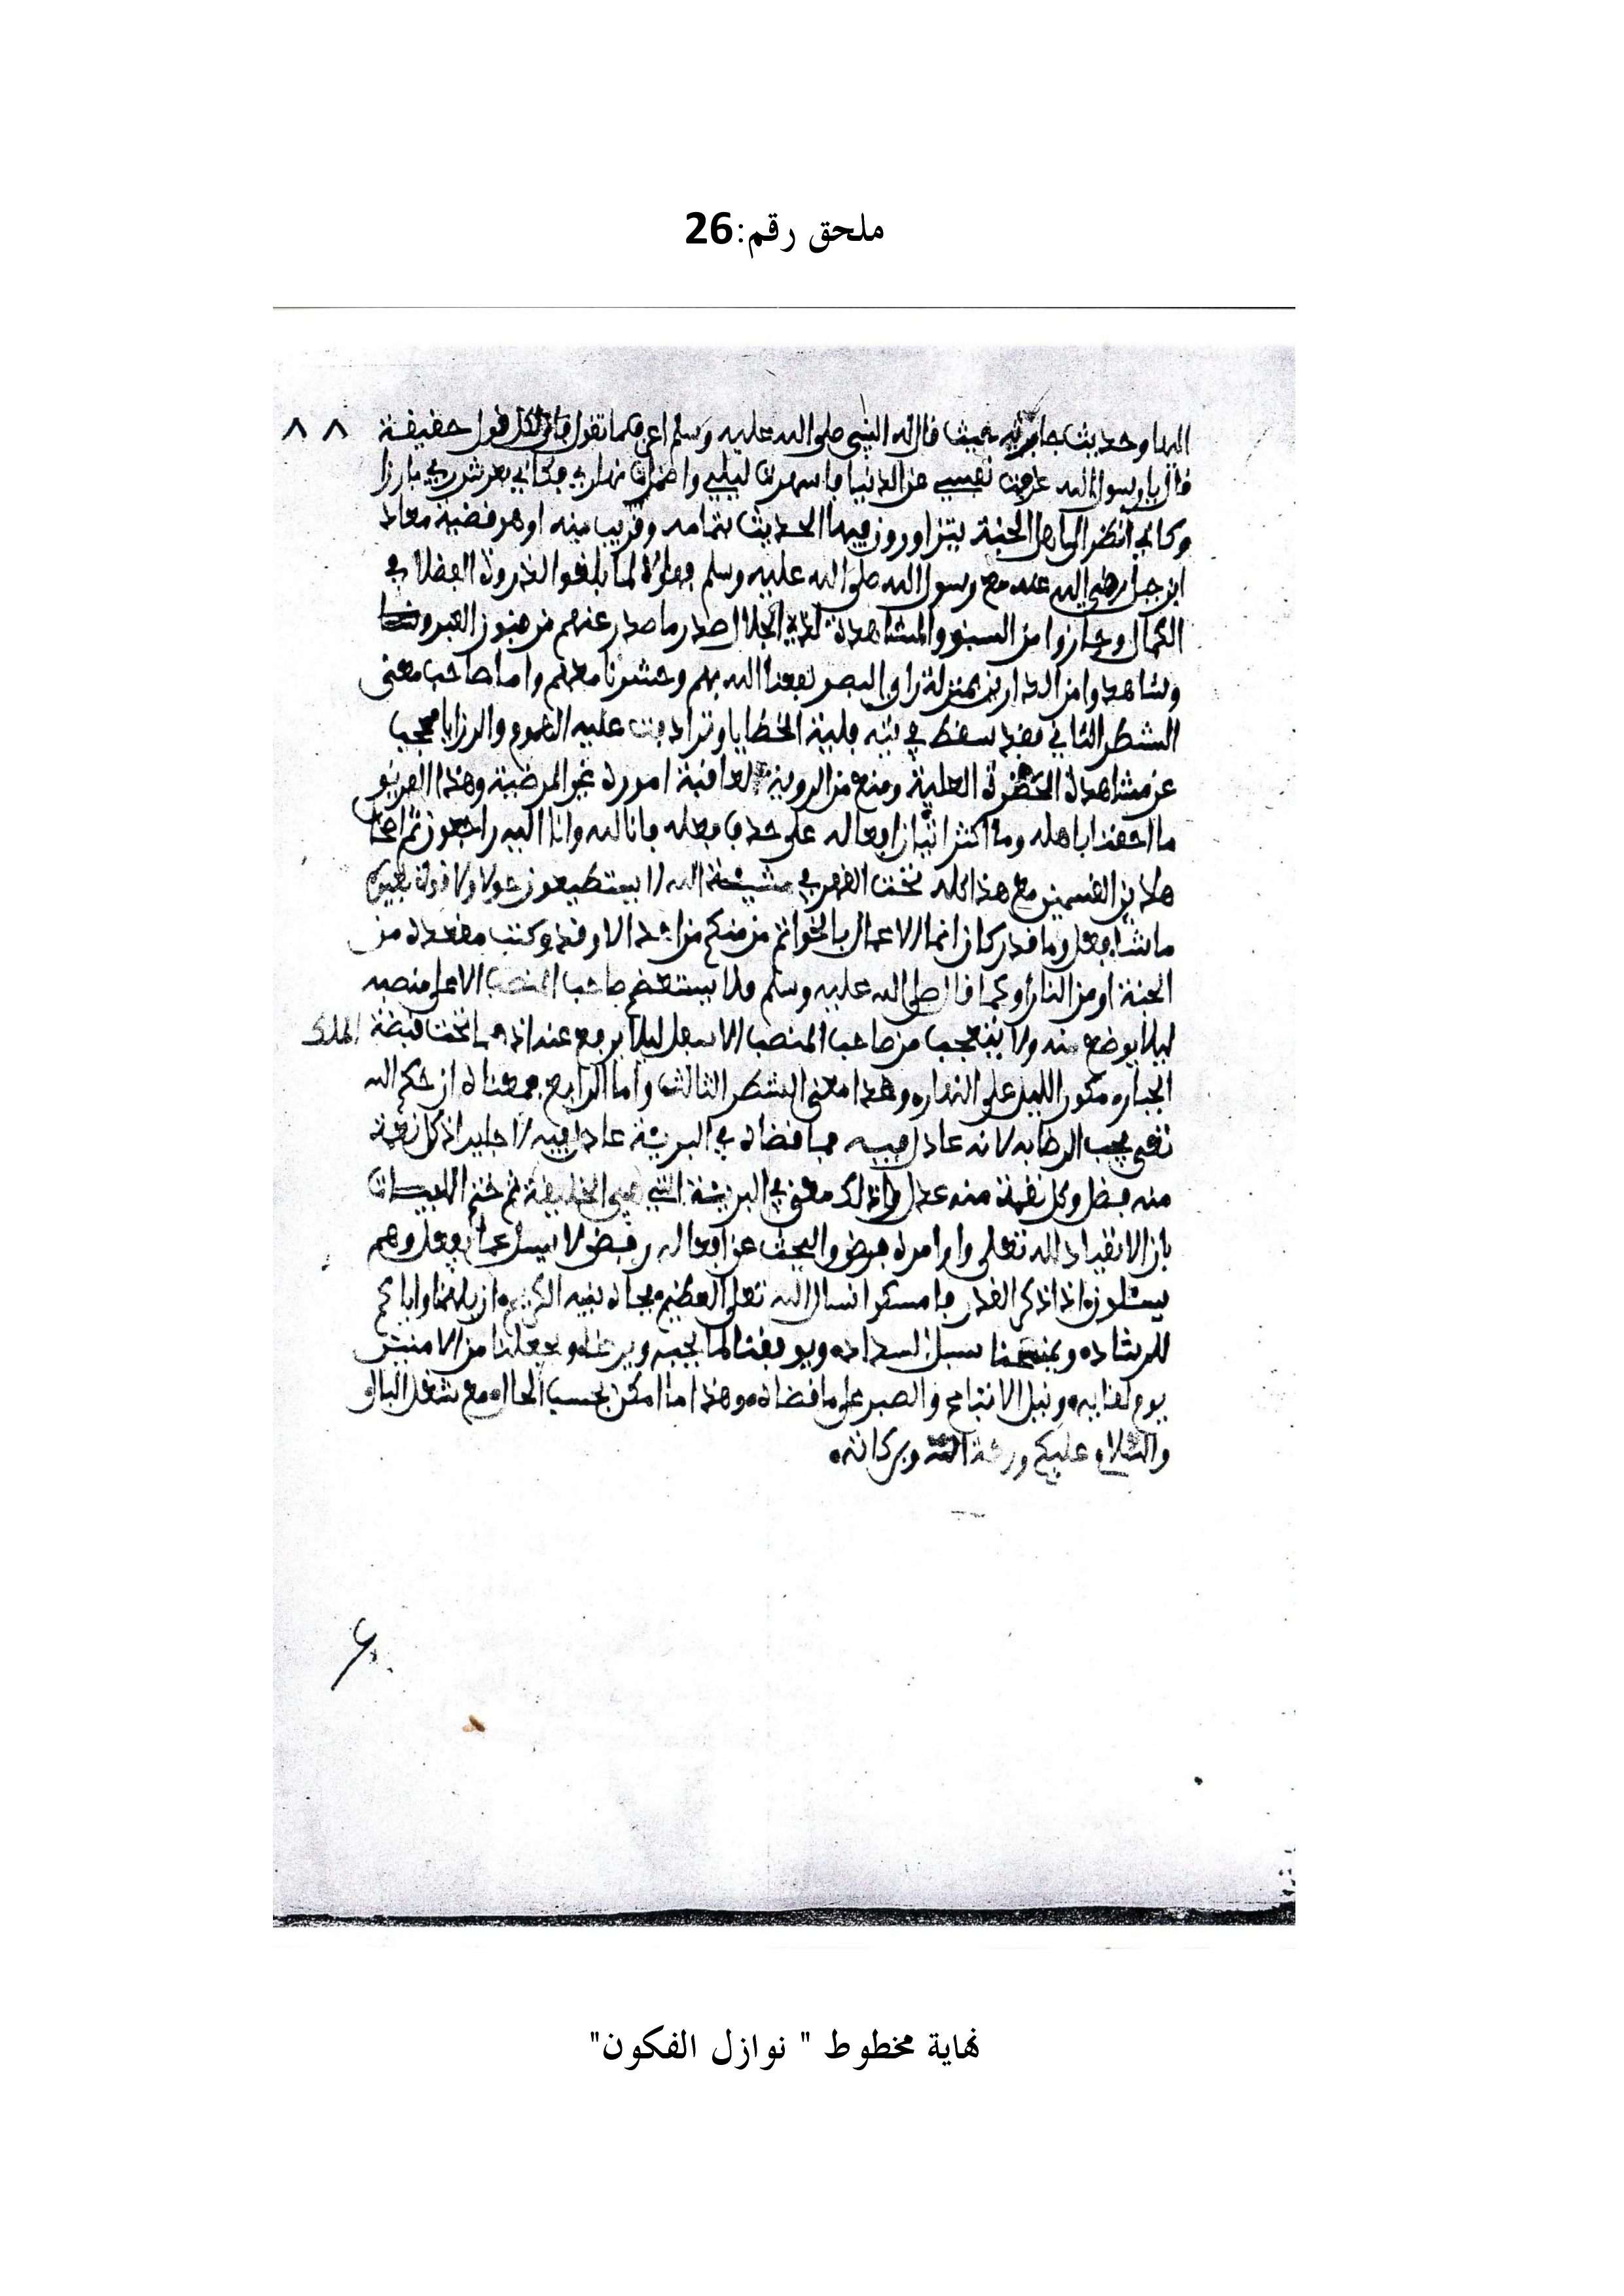 ملحق رقم:26
٨٨
اليها وحديث حيث قال له النبي صلى الله عليه وسلم اعرف ما تقول فان لكل قول حقيقة
قال يا رسول الله عزفت نفسي عن الدنيا فاسهرت ليلي واظمات نهاري فكاني بعرش ربي بارزا
وكاني انظر الى اهل الجنة يتزاورون فيها الحديث بتمامه وقريب منه او هو قضية معاذ
ابن جبل رضي الله عنه مع رسول الله صلى الله عليه وسلم فهولاء لما بلغوا الذروة العظلا في
الكمال وحازوا من السبق والمشاهدة لذي الجلال صدر ما صدر عنهم من فنون العبر
وشاهدوا من الدارين بمنزلة راي البصر نفعنا الله بهم وحشرنا معهم واما صاحب معنى
الشطر الثاني فقد سقط في بئة الخطايا وترادفت عليه الهموم والرزايا فحجب
عن مشاهدة الحضرة العلية ومنع من الروية لعاقبة اموره غير المرضية وهذا الفريق
ما احقنا باهله وما اكثر افعاله على حد فعله فانا لله وانا اليه راجعون ثم
هاذين القسمين مع هذا كله تحت القهر في مشيئة الله لا يستطيعون حولا ولا قوة
ما شاء فعل وما قدر كان انما الاعمال بالخواتم من منكم من احد الا وقد كتب مقعده من
الجنة او من النار او كما قال صلى الله عليه وسلم فلا يستعظم صاحب المنصب الاعلى منصبه
ليلا يوضع منه ولا يتعجب من صاحب المنصب الاسفل ليلا يرفع عنه اذ هما تحت قبضة الملك
الجبار مكور الليل على النهار وهذا معنى الشطر الثالث واما الرابع فمعناه ان حكم الله
تعلى يجب الرضا به لانه عادل فيه فما قضاه في البرية عادل فيه لا حايد اذ كل نعمة
منه فضل وكل نقمة منه عدل وذلك معنى في البرية التي هي الخليقة ثم ختم الابيات
بان الانقياد لله تعلى واوامره فرض والبحث عن افعاله رفض لا يسل عما يفعل وهم
يسئلون اذا ذكر القدر فامسكوا نسال الله تعلى العظيم بجاه نبيه الكريم ان يلهمنا واياكم
للرشاد ويمنحنا سبل السداد ويوفقنا لما يحبه ويرضاه ويجعلنا من الامنين
يوم لقايه ونيل والصبر على ما قضاه وهذا ما امكن بحسب الحال مع شغل البال
والسلام عليكم ورحمة الله وبركاته
نهاية مخطوط " نوازل الفكون"